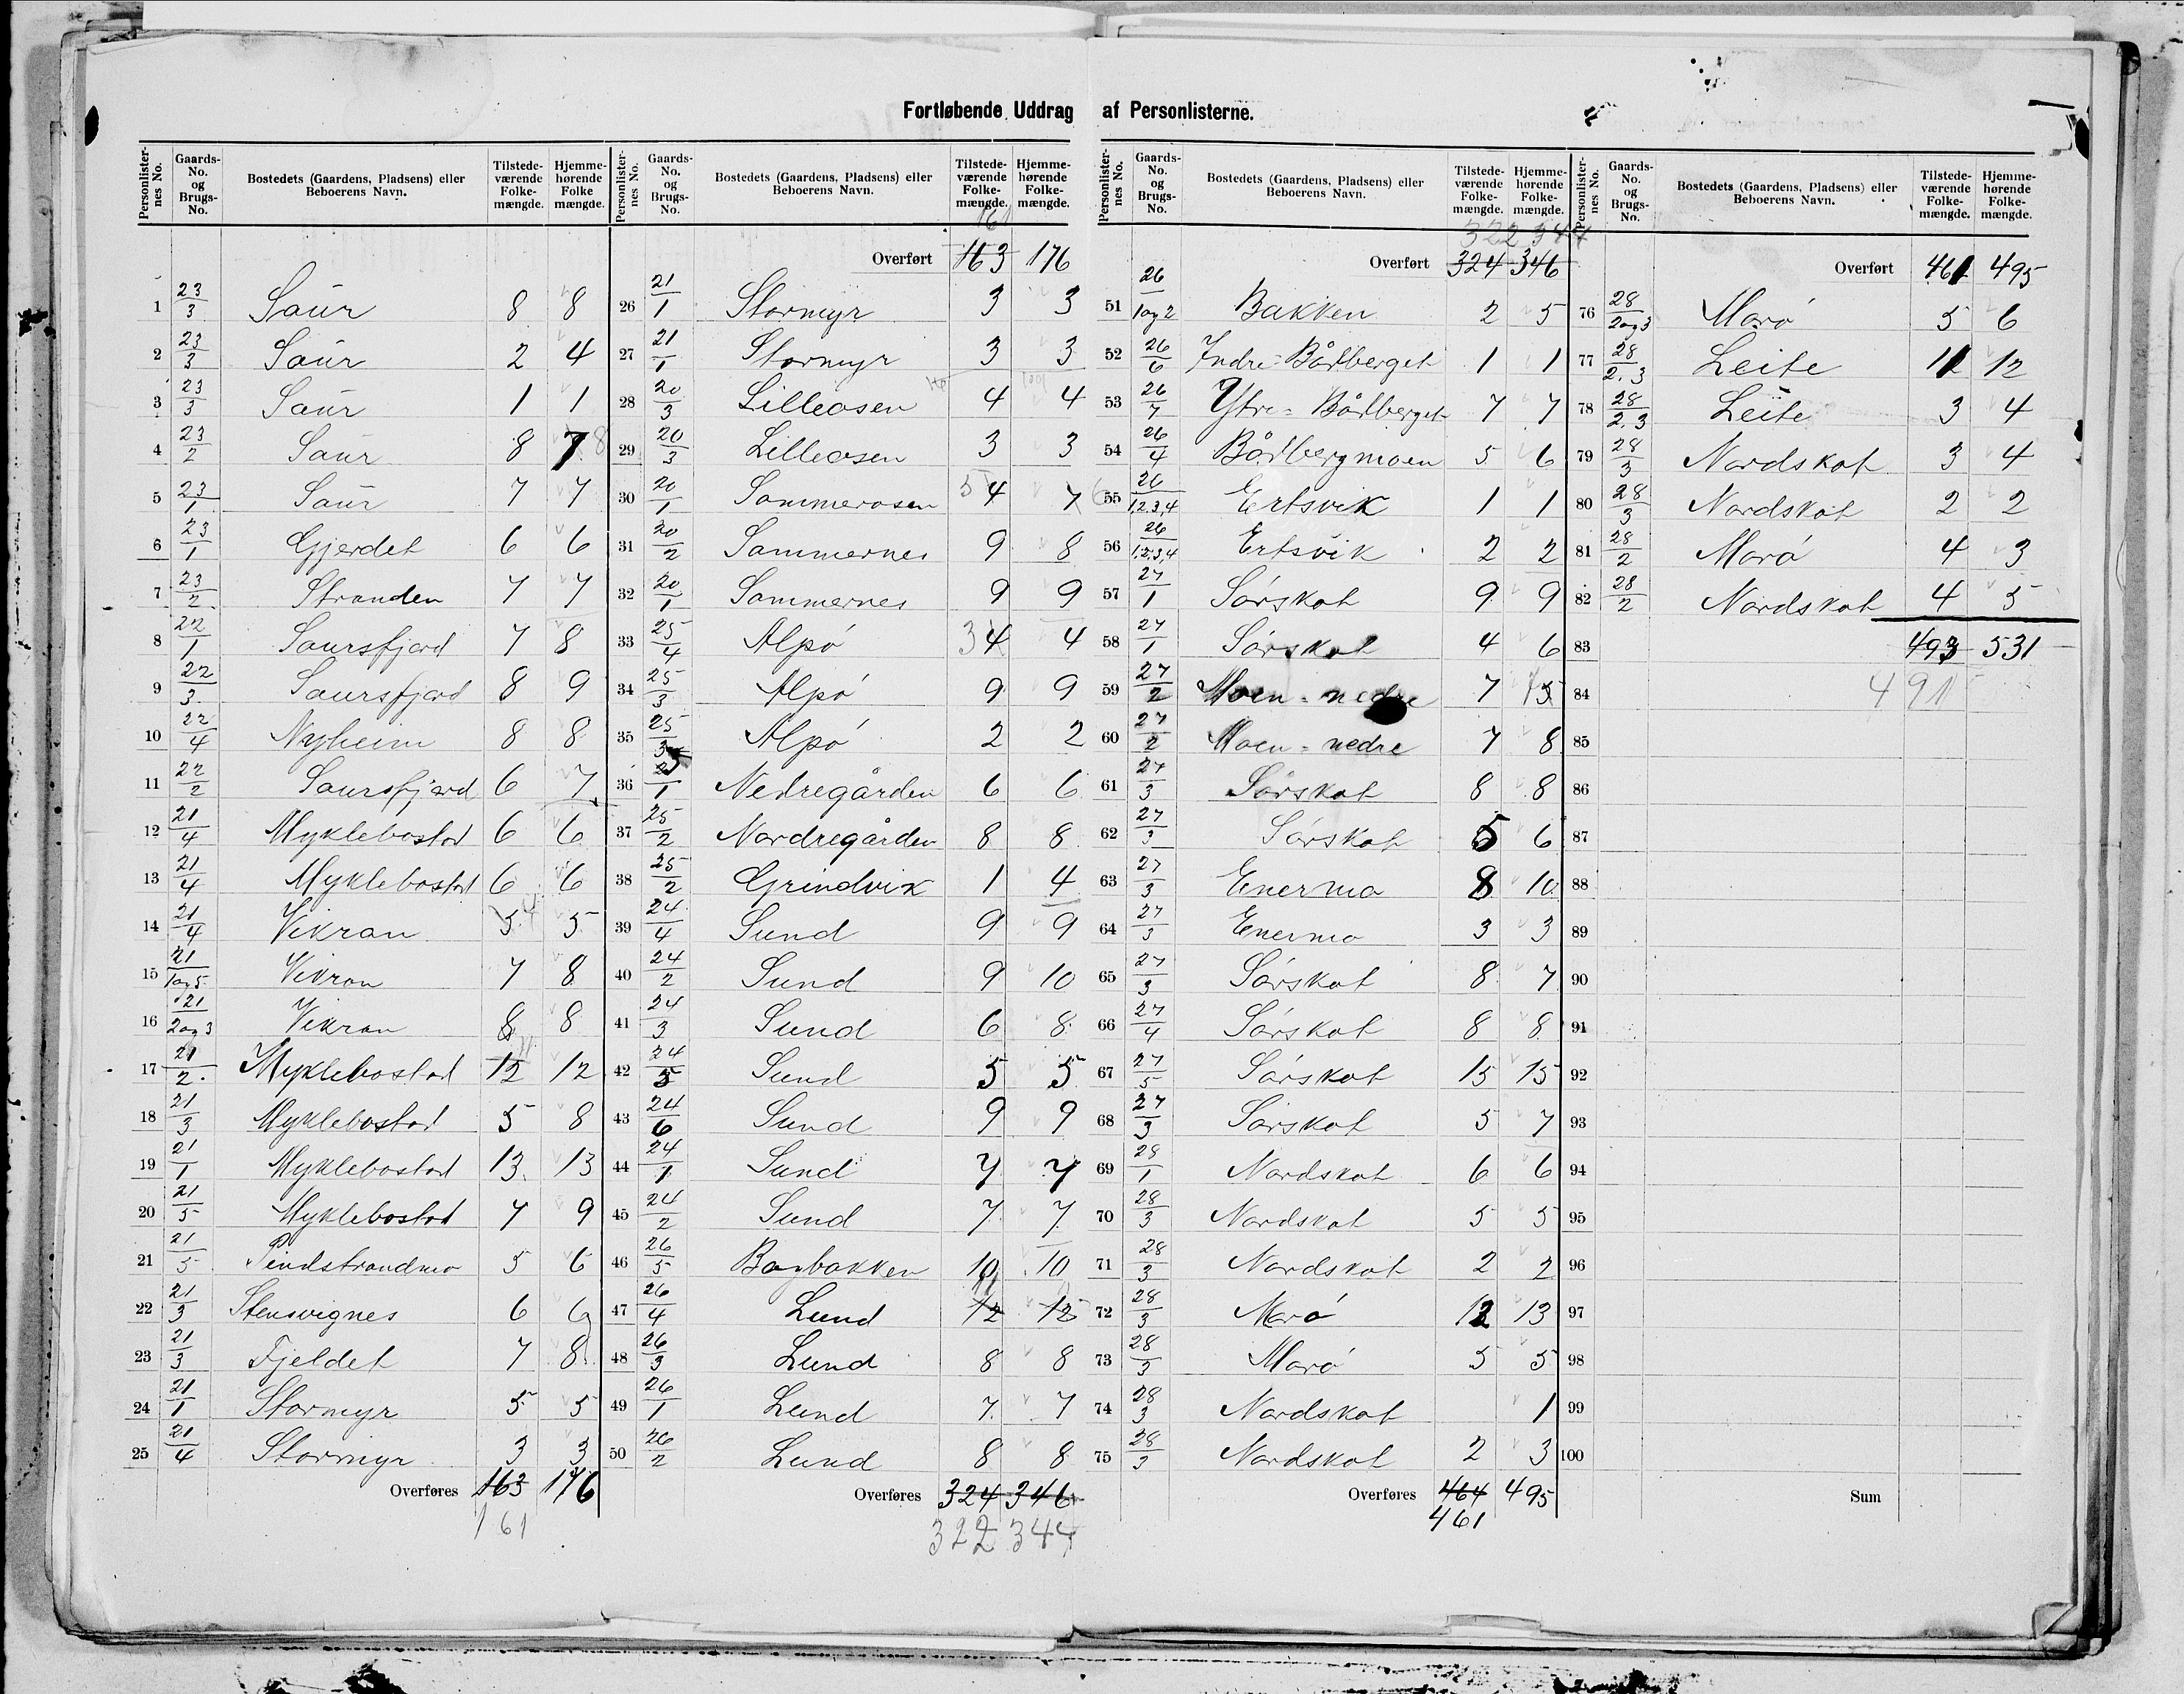 Fortløbende Uddrag af Personlisterne.
Personlisternes No. Gaards-No. og Brugs-No. Bostedets (Gaardens, Pladsens) eller Beboerens Navn. Tilstedeværende Folkemængde. Hjemmehørende Folkemængde.
1 23/3 Saur 8 8
2 23/3 Saur 2 4
3 23/3 Saur 1 1
4 23/2 Saur 8 7 8
5 23/1 Saur 7 7
6 23/1 Gjerdet 6 6
7 23/2 Stranden 7 7
8 22/1 Saursfjord 7 8
9 22/3 Saursfjord 8 9
10 22/4 Nyheim 8 8
11 22/2 Saursfjord 6 7
12 21/4 Myklebostad 6 6
13 21/4 Myklebostad 6 6
14 21/4 Vikran 5 4 5
15 21/1og5 Vikran 7 8
16 21/2og3 Vikran 8 8
17 21/2 Myklebostad 12 11 12
18 21/3 Myklebostad 5 8
19 21/1 Myklebostad 13 13
20 21/5 Myklebostad 7 9
21 21/5 Pindstrandmo 5 6
22 21/3 Stensvignes 6 6
23 21/3 Fjeldet 7 8
24 21/1 Stormyr 5 5
25 21/4 Stormyr 3 3
Overføres 163 176
161
161
Overført 163 176
26 21/1 Stormyr 3 3
27 21/1 Stormyr 3 3
28 20/3 Lilleosen 4 4
29 20/3 Lilleosen 3 3
30 20/1 Sommerosen 5 4 7 6
31 20/2 Sommernes 9 8
32 20/1 Sommernes 9 9
33 25/4 Alpø 3 4 4
34 25/3 Alpø 9 9
35 25/3 Alpø 2 2
36 25/1 Nedregården 6 6
37 25/2 Nordregården 8 8
38 25/2 Grindvik 1 4
39 24/4 Sund 9 9
40 24/2 Sund 9 10
41 24/3 Sund 6 8
42 24/5 Sund 5 5
43 24/6 Sund 9 9
44 24/1 Sund 7 7
45 24/2 Sund 7 7
46 26/5 Bogbakken 10 10
47 26/4 Lund 12 11 12
48 26/3 Lund 8 8
49 26/1 Lund 7 7
50 26/2 Lund 8 8
Overføres 324 346
322 344
322 344
Overført 324 346
51 26/1og2 Bakken 2 5
52 26/6 Indre-Bådberget 1 1
53 26/7 Ytre-Bådberget 7 7
54 26/4 Bådbergmoen 5 6
55 26/1,2,3,4 Ertsvik 1 1
56 26/1,2,3,4 Ertsvik 2 2
57 27/1 Sørskot 9 9
58 27/1 Sørskot 4 6
59 27/2 Moen-nedre 7 15
60 27/2 Moen-nedre 7 8
61 27/3 Sørskot 8 8
62 27/3 Sørskot 5 6
63 27/3 Enermo 8 10
64 27/3 Enermo 3 3
65 27/3 Sørskot 8 7
66 27/4 Sørskot 8 8
67 27/5 Sørskot 15 15
68 27/3 Sørskot 5 7
69 28/1 Nordskot 6 6
70 28/3 Nordskot 5 5
71 28/3 Nordskot 2 2
72 28/3 Morø 12 13
73 28/3 Morø 5 5
74 28/3 Nordskot 1
75 28/3 Nordskot 2 3
Overføres 464 495
461
Overført 461 495
76 28/2og3 Morø 5 6
77 28/2.3 Leite 11 12
78 28/2.3 Leite 3 4
79 28/3 Nordskot 3 4
80 28/3 Nordskot 2 2
81 28/2 Morø 4 3
82 28/2 Nordskot 4 5
83 493 531
84 491
85
86
87
88
89
90
91
92
93
94
95
96
97
98
99
100
Sum